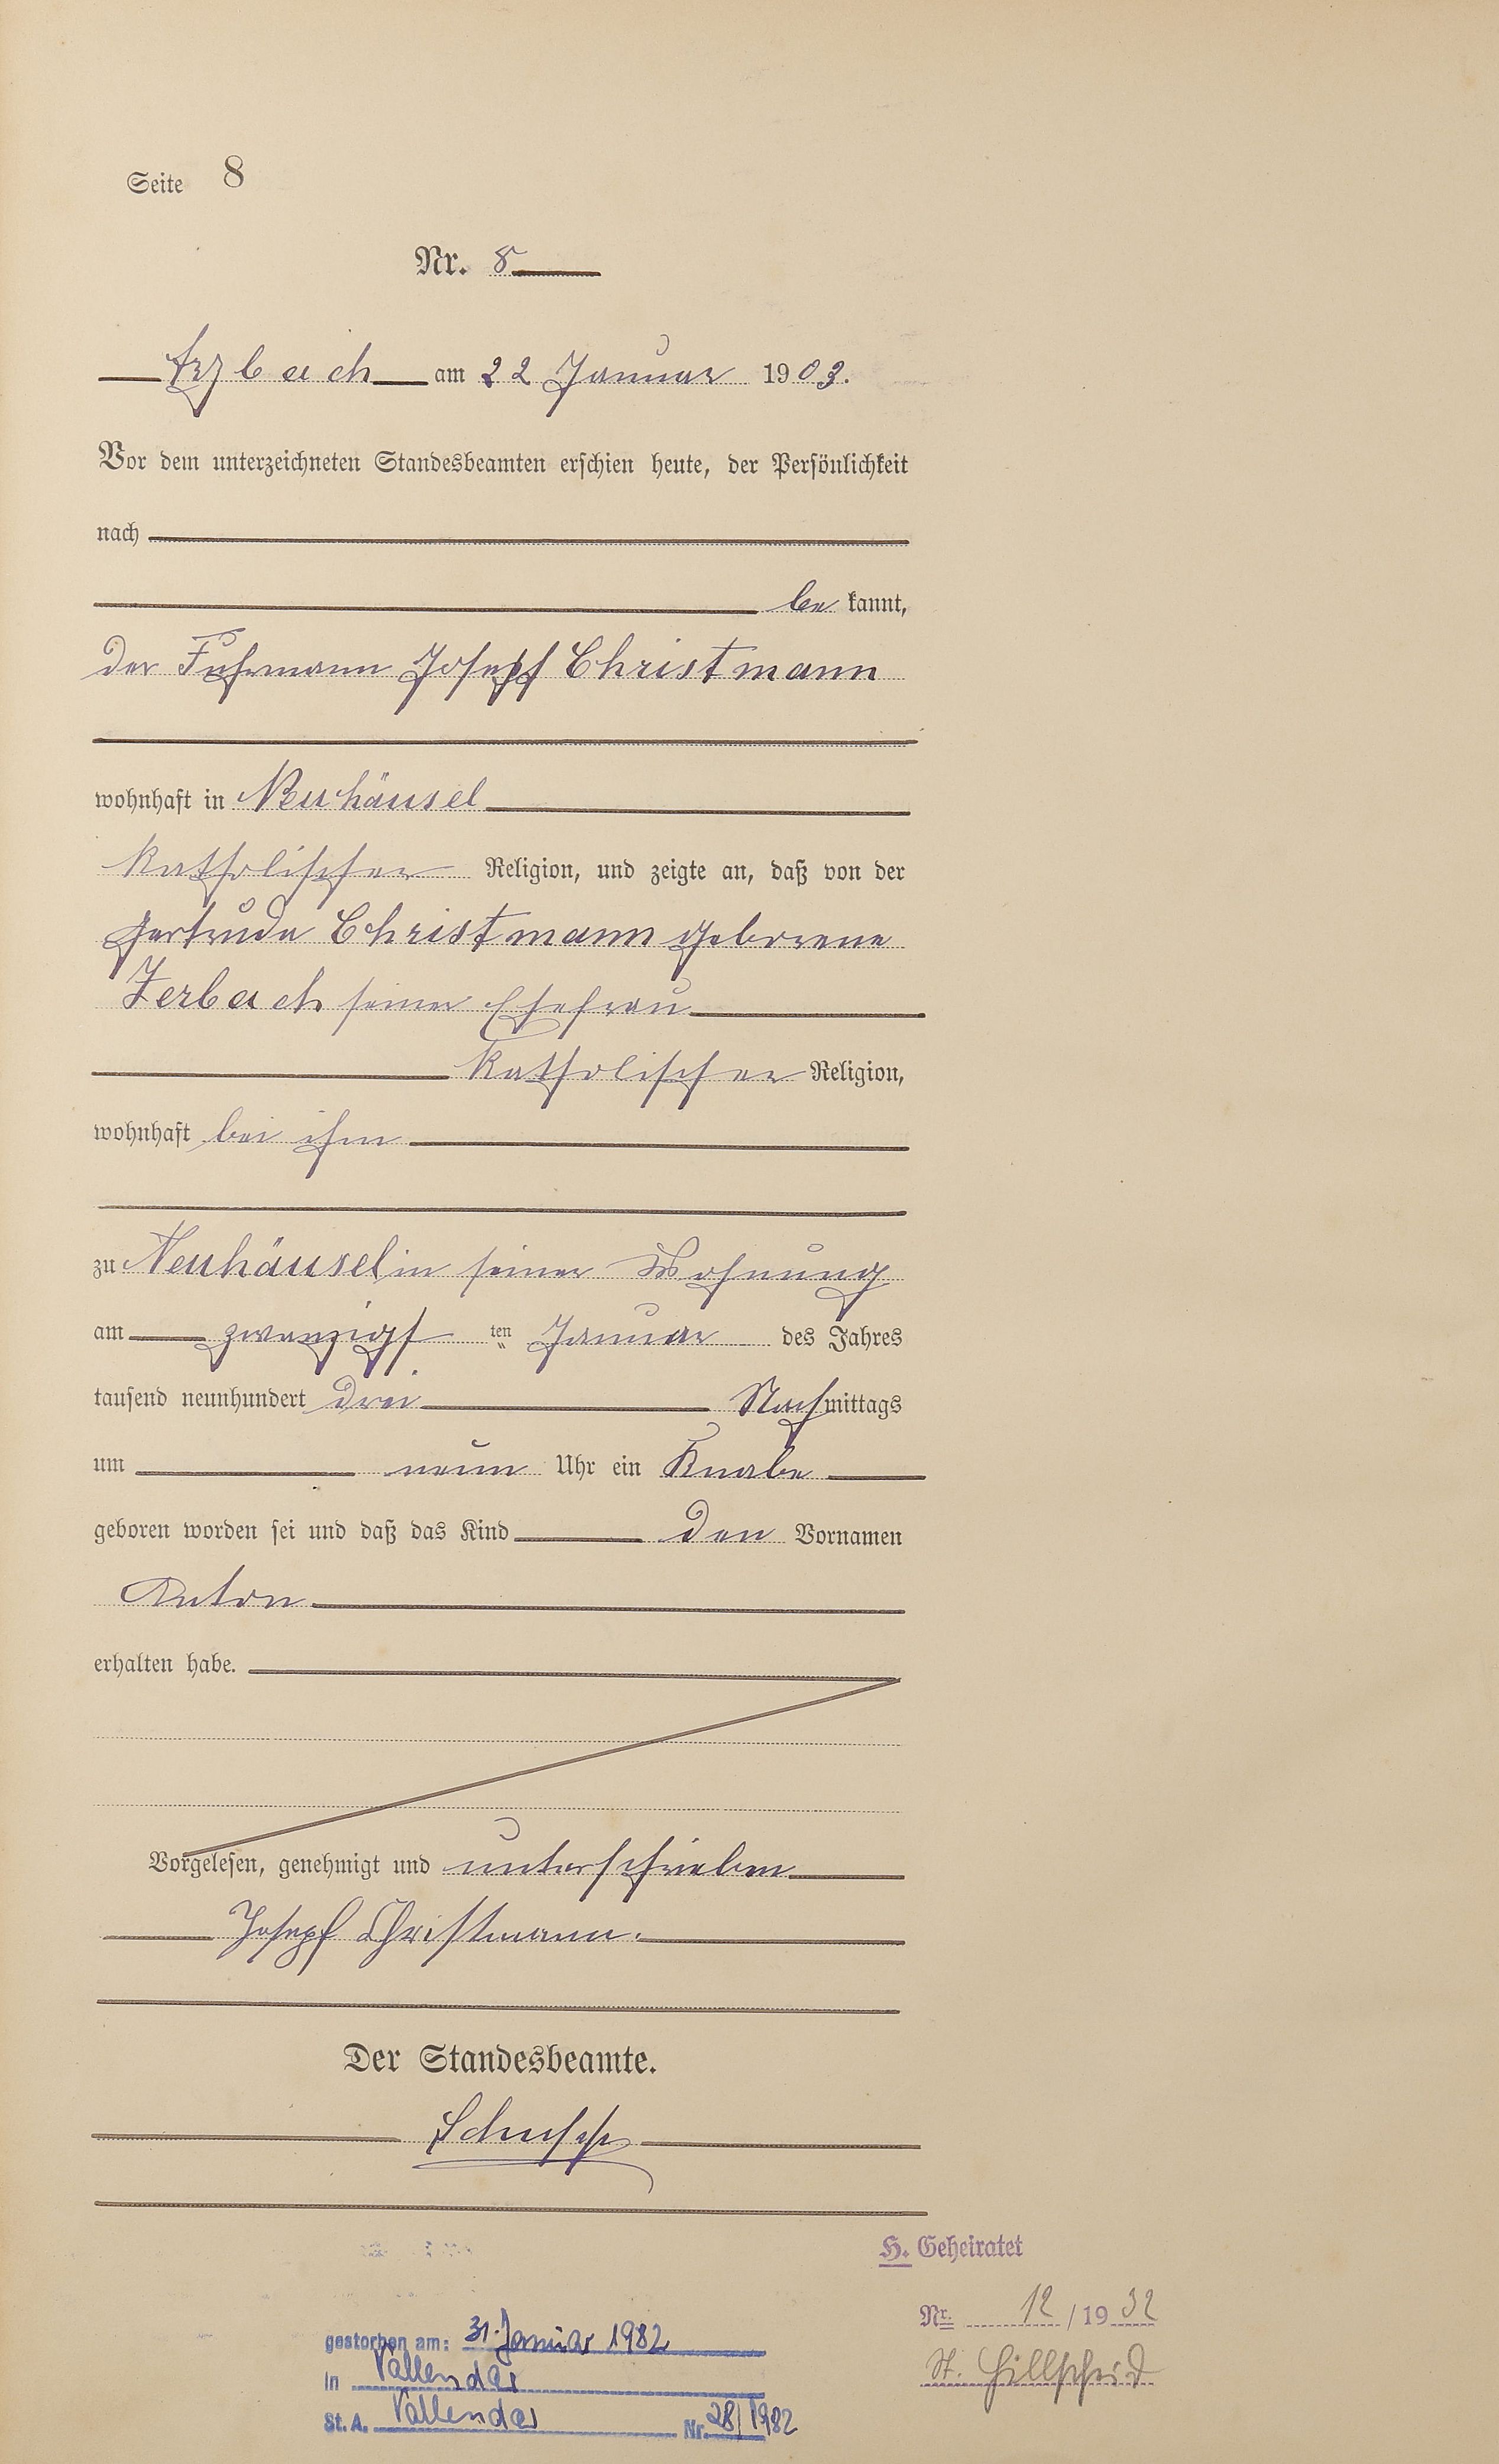 Seite 8
Nr. 8
Arzbach am 22 Januar 1903.
Vor dem unterzeichneten Standesbeamten erschien heute, der Persönlichkeit
nach
be kannt,
der Fuhrmann Josepf Christmann
wohnhaft in Neuhäusel
katholischer Religion, und zeigte an, daß von der
Gertrude Christmann geborene
Zerbach seiner Ehefrau
katholischer Religion,
wohnhaft bei ihm
zu Neuhäusel in seiner Wohnung
am zwanzigsten Januar des Jahres
tausend neunhundert drei Nachmittags
um neun Uhr ein Knabe
geboren worden sei und daß das Kind den Vornamen
Anton
erhalten habe.
Vorgelesen, genehmigt und unterschrieben
Josepf Christmann.
Der Standesbeamte.
H. Geheiratet
Nr. 12/1932
St. Hillscheid
gestorben am: 31. Januar 1982
in Vallendar
St. A. Vallendar Nr. 28/1982